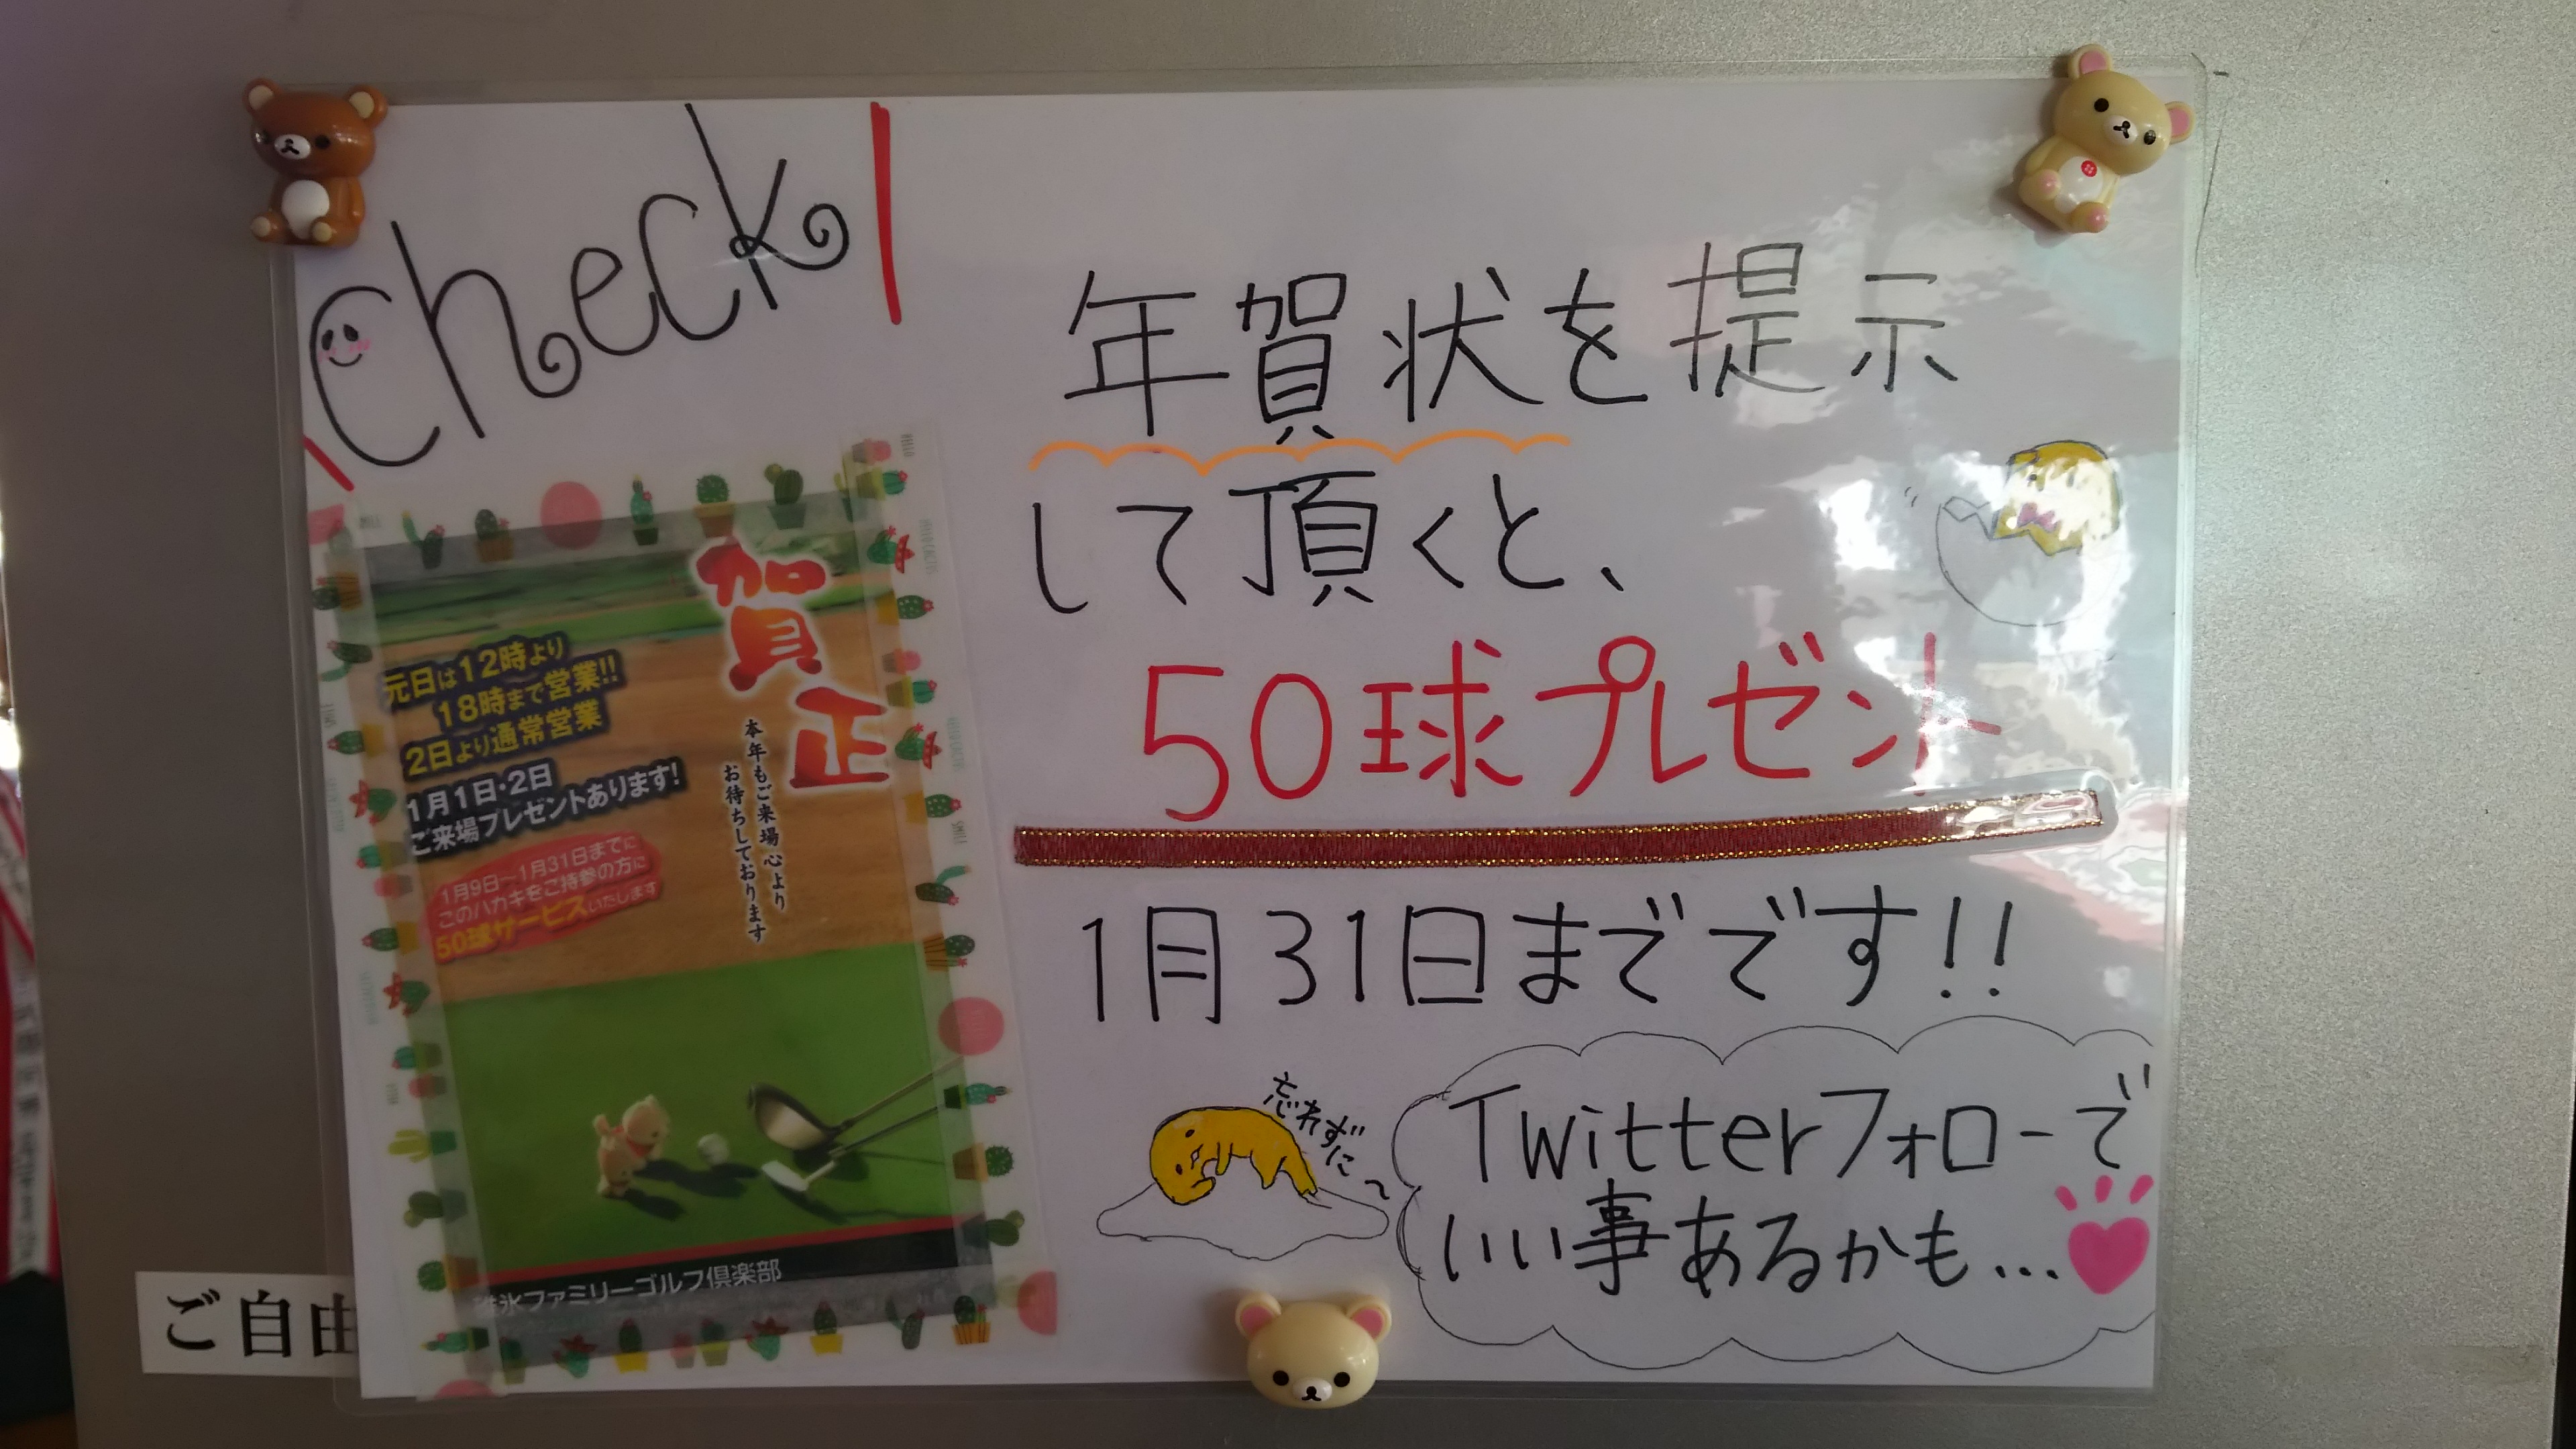 Check!
年賀状を提示
して頂くと、
50球プレゼント
1月31日までです!!
忘れずに〜
Twitterフォローで
いい事あるかも...
賀正
本年もご来場心より
お待ちしております
元日は12時より
18時まで営業!!
2日より通常営業
1月1日・2日
ご来場プレゼントあります!
1月9日〜1月31日までに
このハガキをご持参の方に
50球サービスいたします
氷ファミリーゴルフ倶楽部
ご自由